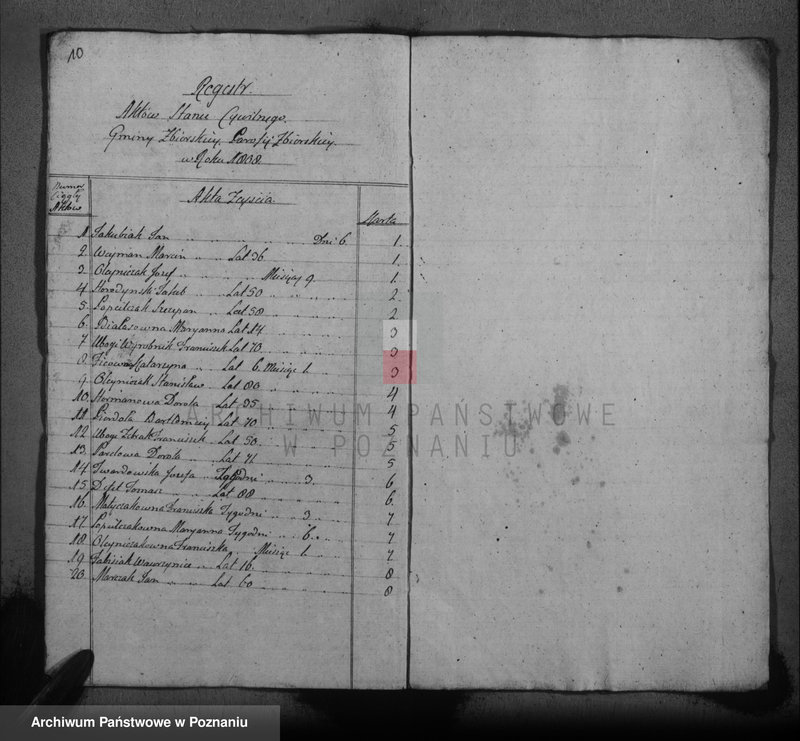 10
Regestr
Aktów Stanu Cywilnego
Gminy Zbiorskiey Parafÿ Zbiorskiey
w Roku 1808.
Numer Ciągły Aktów
Akta Zeyścia
Karta
1 Jakubiak Jan Dni 6. 1.
2. Weyman Marcin Lat 36 1.
3. Oleyniczak Josef Miesięcy 9. 1.
4. Horodyński Jakub Lat 50 2
5. Popcilczak Szczepan Lat 58 2
6. Białasowna Maryanna Lat 14 3
7 Ubogi Wyrobnik Franciszek Lat 70 3
8. Katarzyna Lat 6. Miesiąc 1. 3
9. Oleyniczak Stanisław Lat 80 4
10. Hermanowa Dorota Lat 35 4
11. Pierdoła Bartłomiey Lat 70 5
12. Ubogi Żebrak Franciszek Lat 50 5
13. Dorota Lat 71 5
14. Twardowska Josefa Tygodni 3. 6
15. Tomasz Lat 88 6.
16. Franciszka Tygodni 3 7
17. Popcilczakowna Maryanna Tygodni 6. 7
18. Oleyniczakowna Franciszka Miesiąc 1. 7
19. Wawrzyniec Lat 16. 8
20. Marczak Jan Lat 60 8
ARCHIWUM PAŃSTWOWE
W POZNANIU
Archiwum Państwowe w Poznaniu